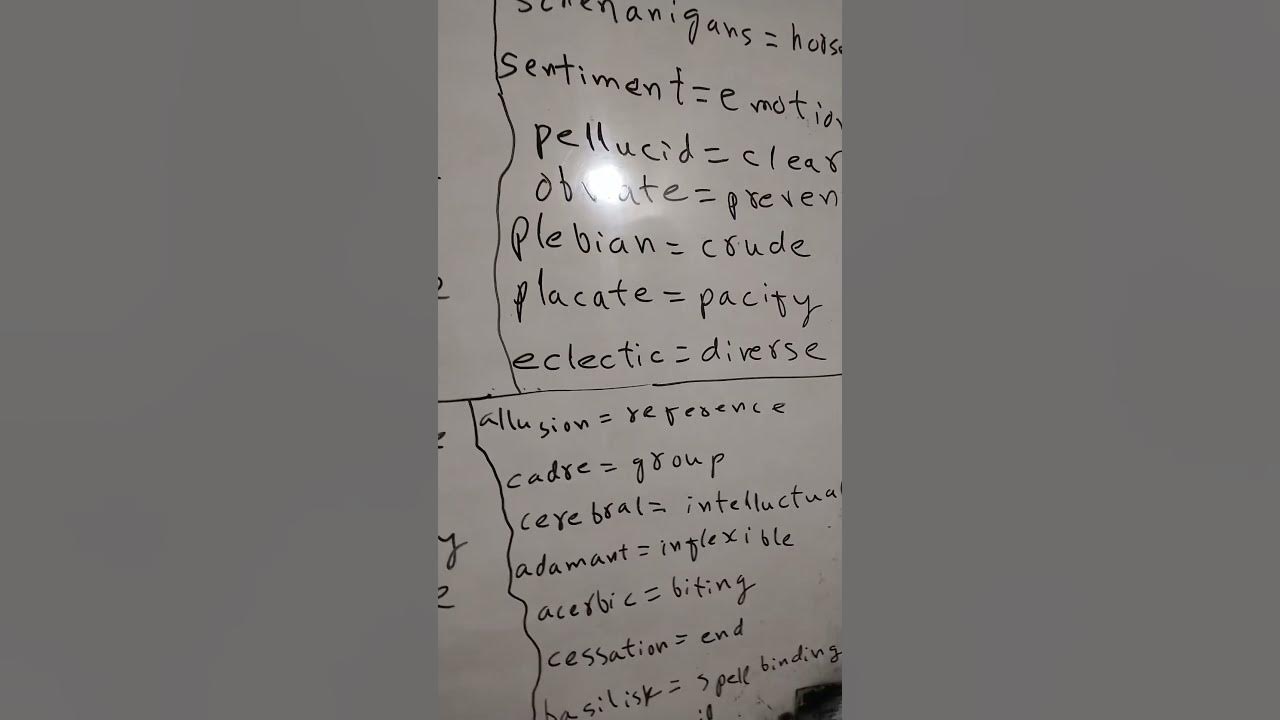 schenanigans = horse
sentiment = emotion
pellucid = clear
= preven
Plebian = crude
placate = pacify
eclectic = diverse
allusion = reference
cadre = group
cerebral = intelluctual
adamant = inflexible
acerbic = biting
cessation = end
basilisk = spell binding